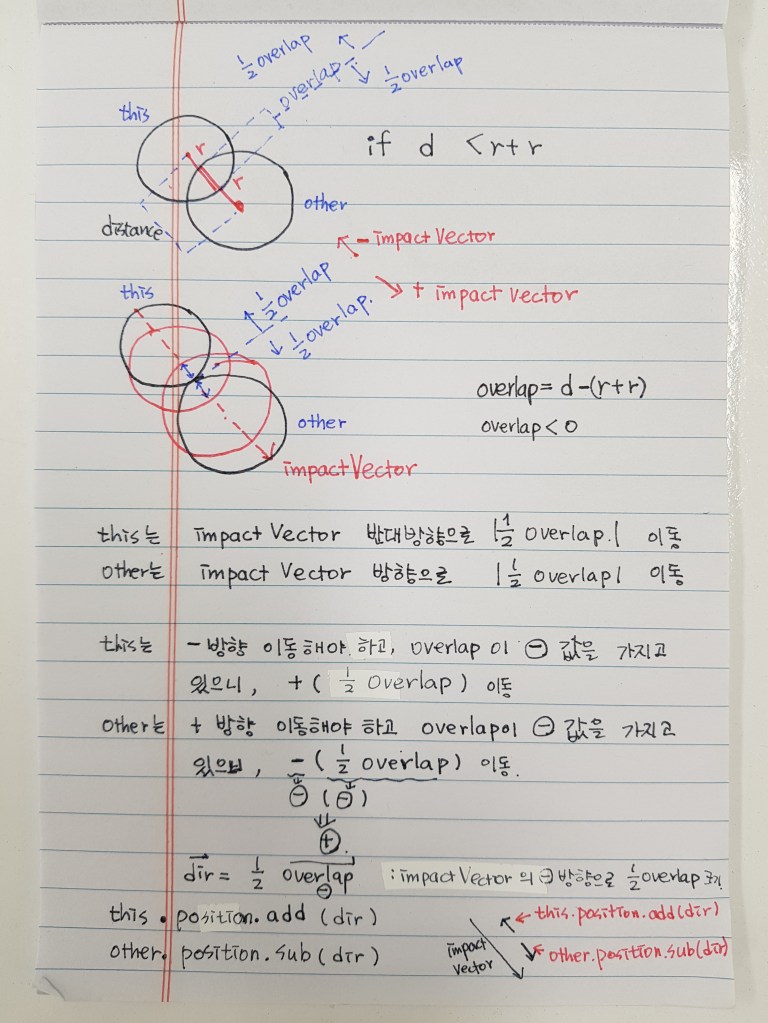 1/2 overlap
overlap
1/2 overlap
this
r
r
if d < r+r
other
distance
- impact Vector
+ impact vector
this
1/2 overlap
1/2 overlap.
overlap = d-(r+r)
overlap < 0
other
impact Vector
this는 impact Vector 반대방향으로 |1/2 overlap.| 이동
other는 impact Vector 방향으로 |1/2 overlap| 이동
this는 - 방향 이동해야 하고, overlap 이 ⊖ 값을 가지고
있으니, + ( 1/2 overlap ) 이동
other는 + 방향 이동해야 하고 overlap이 ⊖ 값을 가지고
있으므로, - ( 1/2 overlap) 이동.
⊖ (⊖)
⇓
⊕.
dir = 1/2 overlap : impact Vector 의 ⊖ 방향으로 1/2 overlap 크기
⊖
this. position.add (dir)
← this.position.add(dir)
other. position.sub (dir)
impact
vector
← other.position.sub(dir)